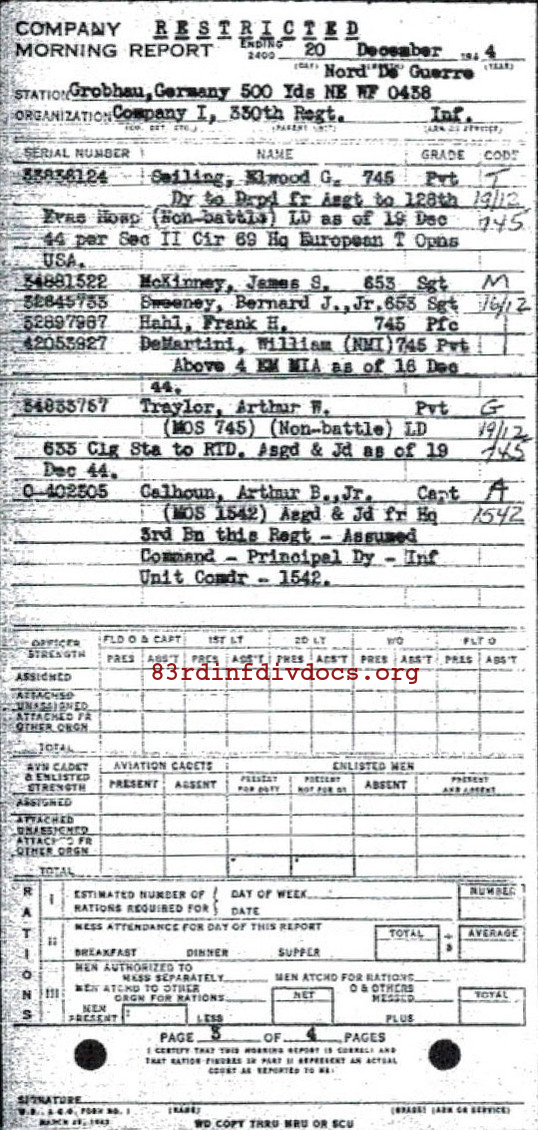 COMPANY RESTRICTED
MORNING REPORT ENDING 2400 20 December 194 4
(DAY) (YEAR)
Nord De Guerre
STATION Grobhau, Germany 500 Yds NE WF 0438
ORGANIZATION Company I, 330th Regt. Inf.
(CO. DET. ETC.) (PARENT UNIT) (ARM OR SERVICE)
SERIAL NUMBER NAME GRADE CODE
33836124 Seiling, Elwood G. 745 Pvt T
Dy to Drpd fr Asgt to 128th 19/12
Evac Hosp (Non-battle) LD as of 19 Dec 745
44 per Sec II Cir 69 Hq European T Opns
USA.
34881522 McKinney, James S. 653 Sgt M
32845733 Sweeney, Bernard J.,Jr,653 Sgt 16/12
32897987 Hahl, Frank H. 745 Pfc
42053927 DeMartini, William (NMI)745 Pvt
Above 4 EM MIA as of 16 Dec
44.
34833757 Traylor, Arthur W. Pvt G
(MOS 745) (Non-battle) LD 19/12
633 Clg Sta to RTD. Asgd & Jd as of 19 745
Dec 44.
O-402305 Calhoun, Arthur B.,Jr. Capt A
(MOS 1542) Asgd & Jd fr Hq 1542
3rd Bn this Regt - Assumed
Command - Principal Dy - Inf
Unit Comdr - 1542.
OFFICER STRENGTH FLD O & CAPT 1ST LT 2D LT WO FLT O
PRES ABS'T PRES ABS'T PRES ABS'T PRES ABS'T PRES ABS'T
83rdinfdivdocs.org
ASSIGNED
ATTACHED UNASSIGNED
ATTACHED FR OTHER ORGN
TOTAL
AVN CADET & ENLISTED STRENGTH AVIATION CADETS ENLISTED MEN
PRESENT ABSENT PRESENT FOR DUTY PRESENT NOT FOR DY ABSENT PRESENT AND ABSENT
ASSIGNED
ATTACHED UNASSIGNED
ATTACHED FR OTHER ORGN
TOTAL
RATIONS
I ESTIMATED NUMBER OF RATIONS REQUIRED FOR { DAY OF WEEK DATE NUMBER
II MESS ATTENDANCE FOR DAY OF THIS REPORT TOTAL ÷ 3 AVERAGE
BREAKFAST DINNER SUPPER
III MEN AUTHORIZED TO MESS SEPARATELY MEN ATCHD FOR RATIONS
MEN ATCHD TO OTHER ORGN FOR RATIONS NET O & OTHERS MESSED TOTAL
MEN PRESENT LESS PLUS
PAGE 3 OF 4 PAGES
I CERTIFY THAT THIS MORNING REPORT IS CORRECT AND
THAT RATION FIGURES IN PART II REPRESENT AN ACTUAL
COUNT AS REPORTED TO ME:
SIGNATURE
W.D., A.G.O. FORM NO. 1 (NAME) (GRADE) (ARM OR SERVICE)
MARCH 25, 1943
WD COPY THRU MRU OR SCU